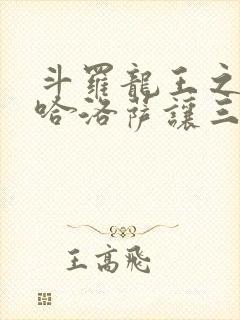 斗羅龍王之
哈洛薩讓三
王高飛